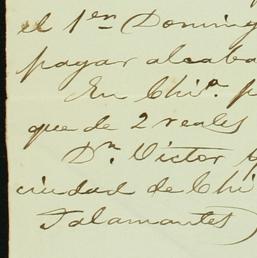 el 1.en Doming
pagar alcaba
En Chi.a p
que de 2 reales
Dn. Victor
ciudad de Chi
Talamantes)